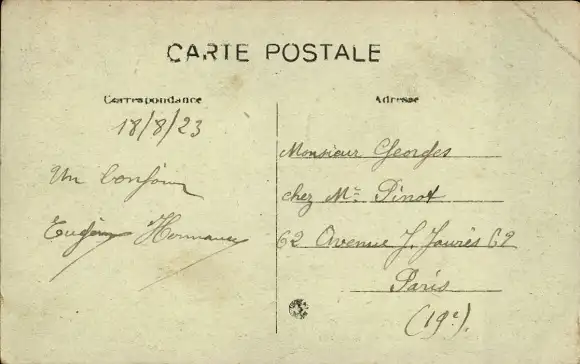 CARTE POSTALE
Correspondance
18/8/23
Un bonjour
Eugène
Adresse
Monsieur Georges
chez Mr Pinot
62 Avenue J. Jaurès 62
Paris
(19e).